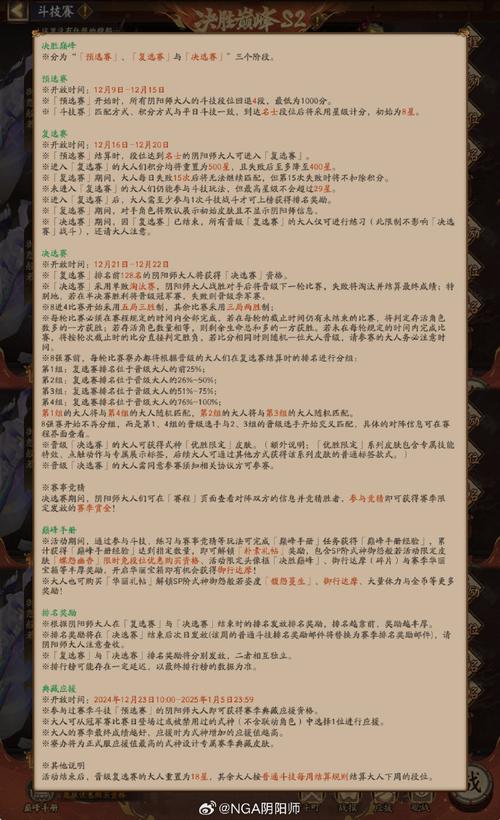 斗技赛
决胜巅峰S2
决胜巅峰
※分为“「预选赛」、「复选赛」与「决选赛」”三个阶段。
预选赛
※开放时间：12月9日-12月15日
※「预选赛」开始时，所有阴阳师大人的斗技段位回退4段，最低为1000分。
※「斗技赛」匹配方式、积分方式与平日斗技一致，到达名士段位后将采用星级计分，初始为8星。
复选赛
※开放时间：12月16日-12月20日
※「预选赛」结算时，段位达到名士的阴阳师大人可进入「复选赛」。
※进入「复选赛」的大人们积分均将重置为500星，且失败后至多降至400星。
※「复选赛」期间，大人每日失败15次后将无法继续匹配，但第15次失败时将不扣除积分。
※未进入「复选赛」的大人们仍能参与斗技玩法，但最高星级不会超过29星。
※进入「复选赛」后，大人需至少参与1次斗技战斗才可上榜获得排名奖励。
※「复选赛」期间，对手角色将默认展示初始皮肤且不显示阴阳师信息。
※「决选赛」期间，因「复选赛」已结束，所有晋级「复选赛」的大人仅可进行练习（此限制不影响「决选
赛」战斗），还请大人注意。
决选赛
※开放时间：12月21日-12月22日
※「复选赛」排名前128名的阴阳师大人将获得「决选赛」资格。
※「决选赛」采用单败淘汰赛，阴阳师大人战胜对手后将晋级下一轮比赛，失败将淘汰并结算最终成绩；特
别地，若在半决赛胜利将晋级冠军赛，失败则晋级季军赛。
※8进4比赛开始采用五局三胜制，其余比赛采用三局两胜制；
※每轮比赛必须在赛程规定的时间内全部完成，若在每轮的截止时间仍有未结束的比赛，将判定存活角色
数多的一方获胜；若存活角色数量相等，则剩余生命总和多的一方获胜。若未在每轮规定的时间内完成比
赛，将按轮次截止时的比分直接判定胜负，若比分相同时随机一位大人晋级，请参赛的大人务必注意时
间。
※8强赛前，每轮比赛都将根据晋级的大人们在复选赛结算时的排名进行分组：
第1组：复选赛排名位于晋级大人的前25%；
第2组：复选赛排名位于晋级大人的26%-50%；
第3组：复选赛排名位于晋级大人的51%-75%；
第4组：复选赛排名位于晋级大人的76%-100%；
第1组的大人将与第4组的大人随机匹配，第2组的大人将与第3组的大人随机匹配。
8强赛开始不再分组，而是第1、4组的晋级选手与2、3组的晋级选手开始交叉匹配，具体的对阵信息可在赛
程界面查看。
※晋级「决选赛」的大人可获得式神「优胜限定」皮肤。（额外说明：「优胜限定」系列皮肤包含专属技能
特效、点触动作与专属展示标签，后续大人可通过其他方式获得该系列皮肤的普通标签款式。）
※晋级「决选赛」的大人需同意参赛须知相关协议方可参赛。
※赛事竞猜
决选赛期间，阴阳师大人们可在「赛程」页面查看对阵双方的信息并竞猜胜者，参与竞猜即可获得赛季限
定发放的赛季赏金！
巅峰手册
※活动期间，通过参与斗技、练习与赛事竞猜等玩法可完成「巅峰手册」任务获得「巅峰手册经验」，累
计获得「巅峰手册经验」达到指定数量，即可解锁「朴素礼帖」奖励，包含SP阶式神御怨般若活动限定皮
肤「蝶怨幽香」限时免段位优惠购买资格、活动限定头像框「决胜巅峰」、御行达摩（碎片）与赛季华丽
宝箱等丰厚奖励，开启华丽宝箱即有机会获得御行达摩！
※大人也可购买「华丽礼帖」解锁SP阶式神御怨般若姿度「馥怨蔓生」、御行达摩、大量体力与金币等更多
奖励！
排名奖励
※根据阴阳师大人在「复选赛」与「决选赛」结束时的排名发放排名奖励，排名越靠前，奖励越丰厚。
※排名奖励将在「决选赛」结束后次日发放(该周的普通斗技排名奖励邮件将替换为赛季排名奖励邮件)，请
阴阳师大人注意查收。
※「复选赛」与「决选赛」排名奖励将分别发放，二者相互独立。
※排行榜可能存在一定延迟，以最终排行榜的数据为准。
典藏应援
※开放时间：2024年12月23日10:00-2025年1月5日23:59
※参与过赛季斗技「预选赛」的阴阳师大人即可获得赛季典藏应援资格。
※大人可从冠军赛比赛日登场过或被禁用过的式神（不含联动角色）中选择1位进行应援。
※大人的赛季最终成绩越好，应援时为式神增加的应援值越高。
※赛办将为正式服应援值最高的式神设计专属赛季典藏皮肤。
※其他说明
活动结束后，晋级复选赛的大人重置为18星，其余大人按普通斗技每周结算规则结算大人下周的段位。
巅峰手册
@NGA阴阳师